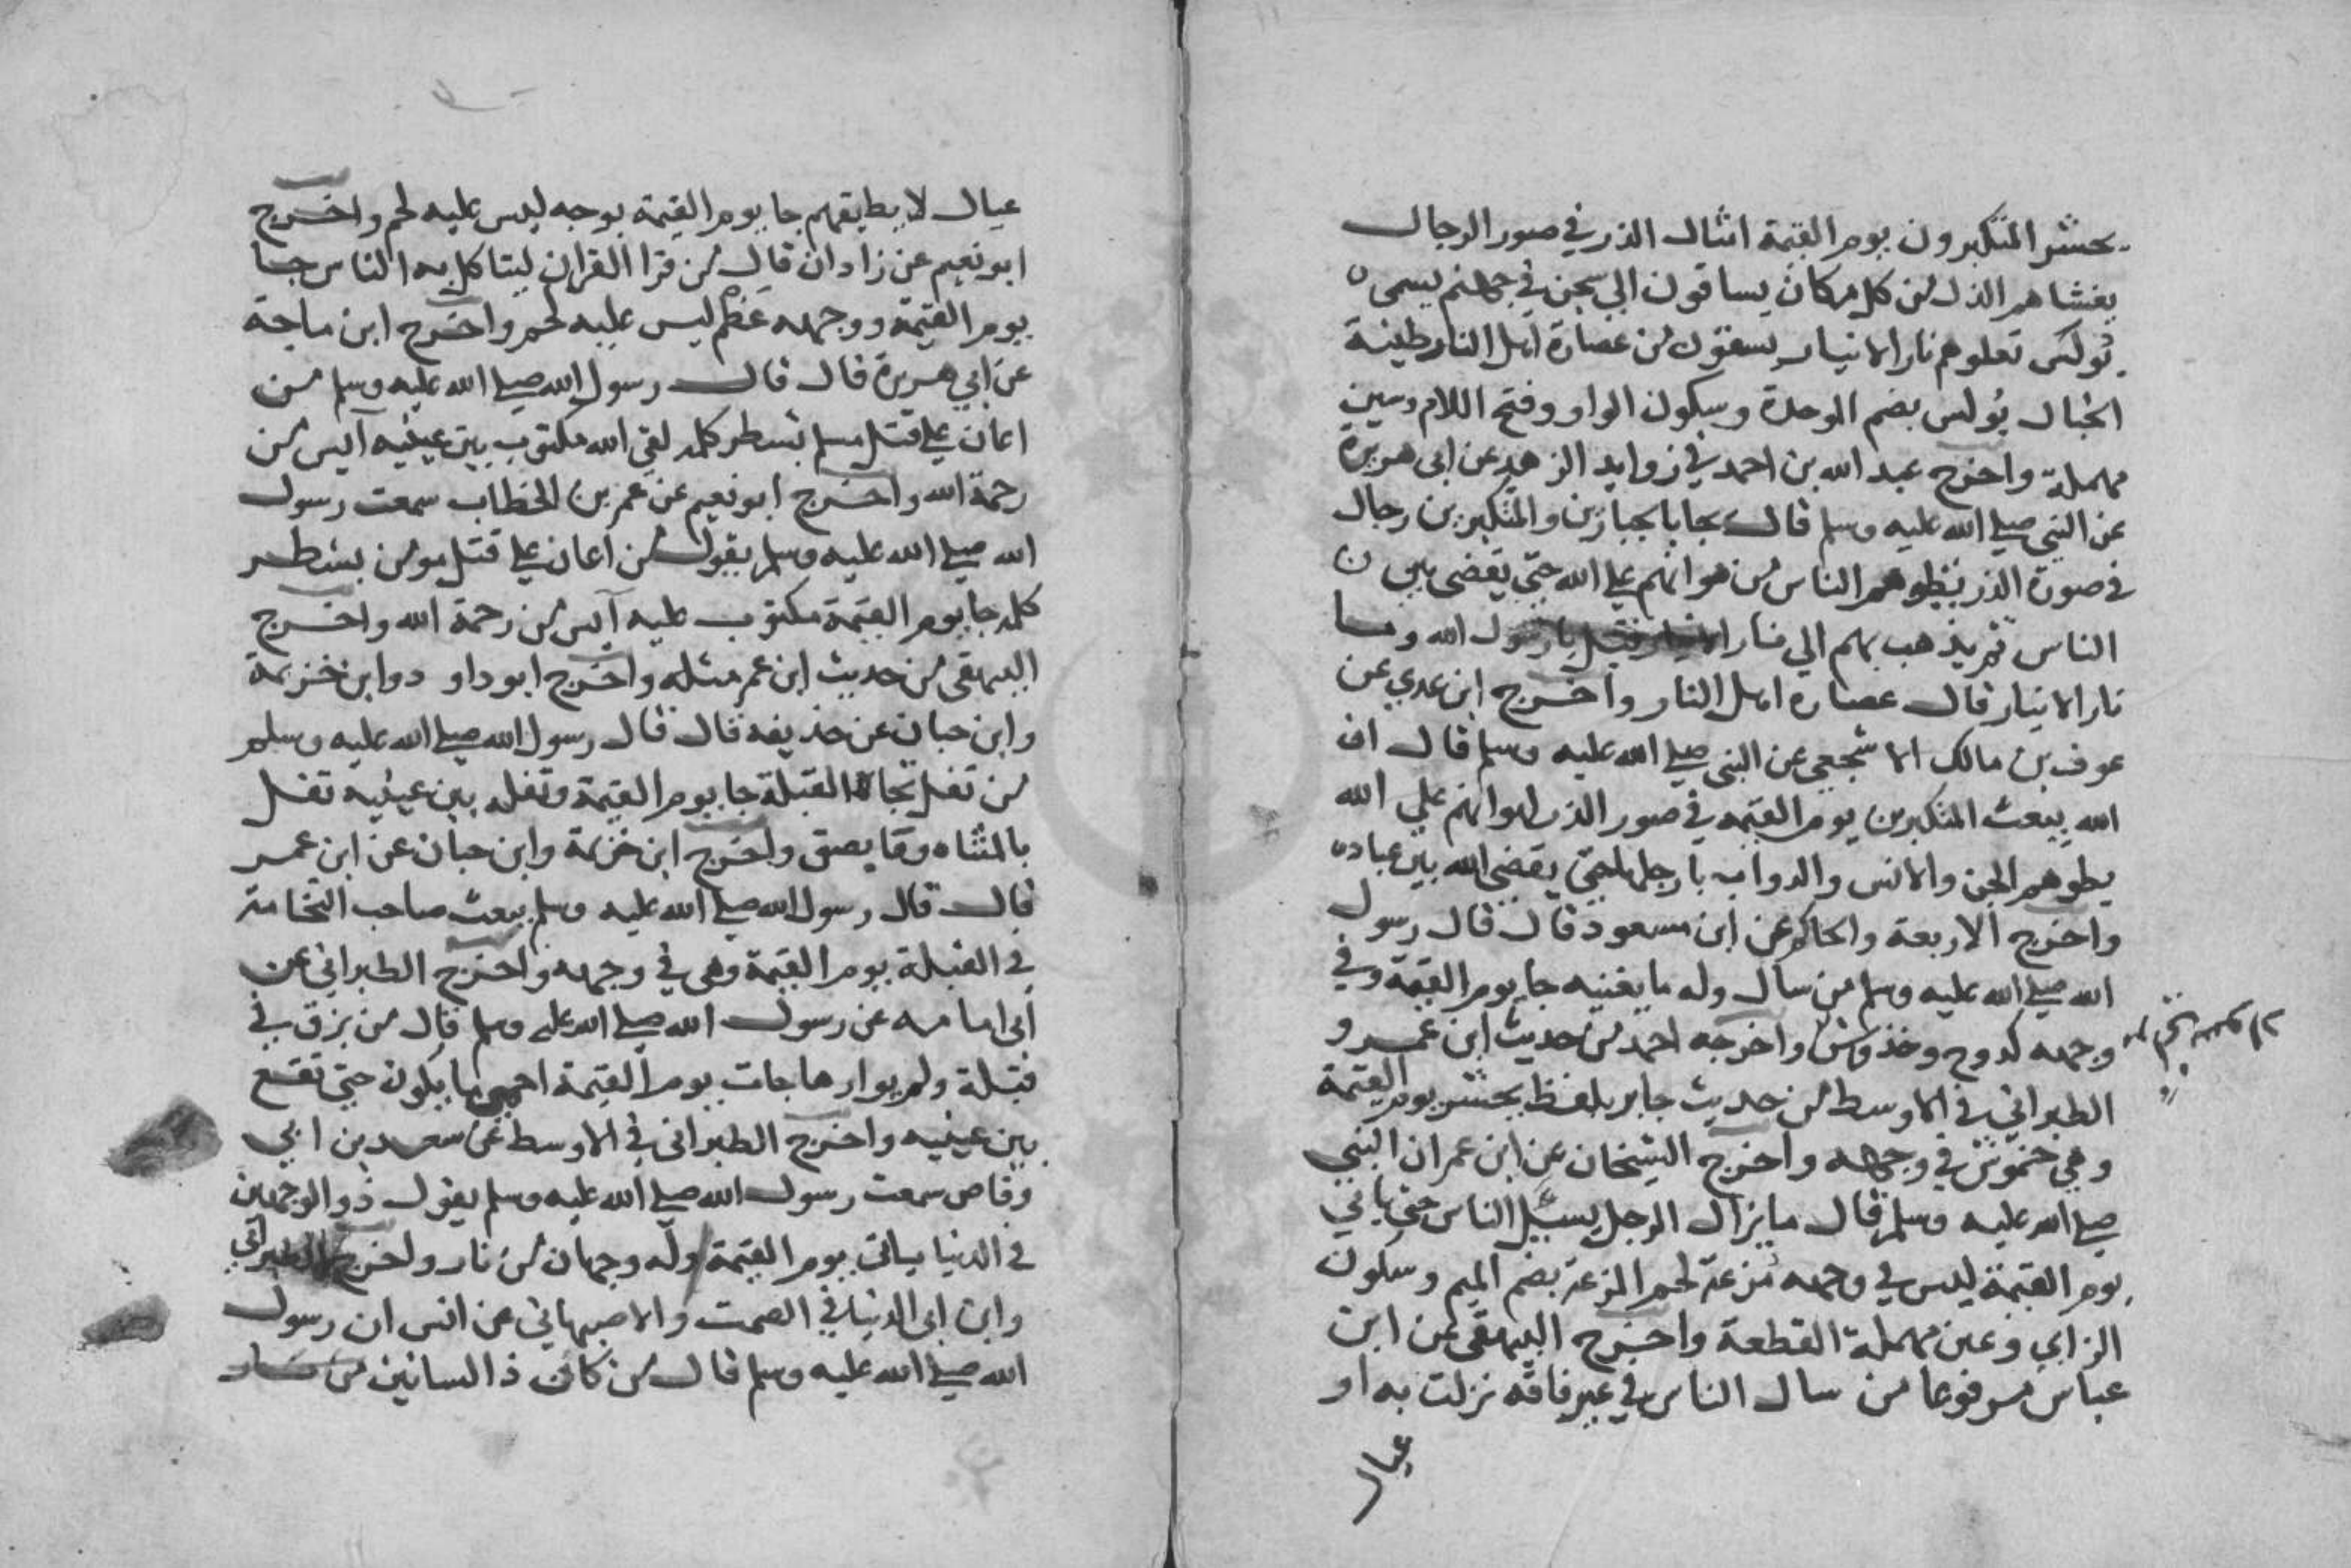 يحشر المتكبرون يوم القيمة امثال الذر في صور الرجال
يغشاهم الذل من كل مكان يساقون الي سجن في جهنم يسمى
بولس تعلوهم نار الانيار يسقون من عصارة اهل النار طينة
الخبال بُولس بضم الموحدة وسكون الواو وفتح اللام وسين
مهملة واخرج عبد الله بن احمد في زوايد الزهد عن ابى هريرة
عن النبي صلي الله عليه وسلم قال يجا بالجبارين والمتكبرين رجال
في صورة الذر يطوهم الناس من هوانهم علي الله حتي يقضى بين
الناس ثم يذهب بهم الي نار الانيار قيل يا رسول الله وما
نار الانيار قال عصارة اهل النار واخرج ابن عدي عن
عوف بن مالك الاشجعي عن النبي صلي الله عليه وسلم قال ان
الله يبعث المتكبرين يوم القيمه في صور الذر لهوانهم علي الله
يطوهم الجن والانس والدواب بارجلها حتي يقضي الله بين عباده
واخرج الاربعة والحاكم عن ابن مسعود قال قال رسول
الله صلي الله عليه وسلم من سال وله ما يغنيه جا يوم القيمة وفي
وجهه كدوح وخدوش واخرجه احمد من حديث ابن عمرو
الطبراني في الاوسط من حديث جابر بلفظ يحشر يوم القيمة
وهي خموش في وجهه واخرج الشيخان عن ابن عمر ان النبي
صلي الله عليه وسلم قال ما يزال الرجل يسئل الناس حتي ياتي
يوم القيمة ليس في وجهه مُزعة لحم المزعة بضم الميم وسكون
الزاي وعين مهملة القطعة واخرج البيهقي عن ابن
عباس مرفوعا من سال الناس في غير فاقه نزلت به او
عيال
عيال لا يطيقهم جا يوم القيمة بوجه ليس عليه لحم واخرج
ابو نعيم عن زادان قال من قرا القران ليتاكل به الناس جا
يوم القيمة ووجهه عظم ليس عليه لحم واخرج ابن ماجة
عن ابي هريرة قال قال رسول الله صلي الله عليه وسلم من
اعان علي قتل مسلم بشطر كلمه لقي الله مكتوب بين عينيه آيس من
رحمة الله واخرج ابو نعيم عن عمر بن الخطاب سمعت رسول
الله صلي الله عليه وسلم يقول من اعان علي قتل مومن بشطر
كلمه جا يوم القيمة مكتوب عليه آيس من رحمة الله واخرج
البيهقى من حديث ابن عمر مثله واخرج ابو داو د وابن خزيمة
وابن حبان عن حذيفه قال قال رسول الله صلي الله عليه وسلم
من تفل تجاه القبلة جا يوم القيمة وتفله بين عينيه تفل
بالمثناه وفا بصق واخرج ابن خزيمة وابن حبان عن ابن عمر
قال قال رسول الله صلي الله عليه وسلم يبعث صاحب النخامة
في القبلة يوم القيمة وهى في وجهه واخرج الطبراني عن
ابى امامه عن رسول الله صلي الله عليه وسلم قال من بزق في
قبلة ولم يوارها جات يوم القيمة احمى ما يكون حتي تقع
بين عينيه واخرج الطبراني في الاوسط عن سعد بن ابي
وقاص سمعت رسول الله صلي الله عليه وسلم يقول ذو الوجهين
في الدنيا ياتى يوم القيمة وله وجهان من نار واخرج الطبراني
وابن ابى الدنيا في الصمت والاصبهاني عن انس ان رسول
الله صلي الله عليه وسلم قال من كان ذا لسانين